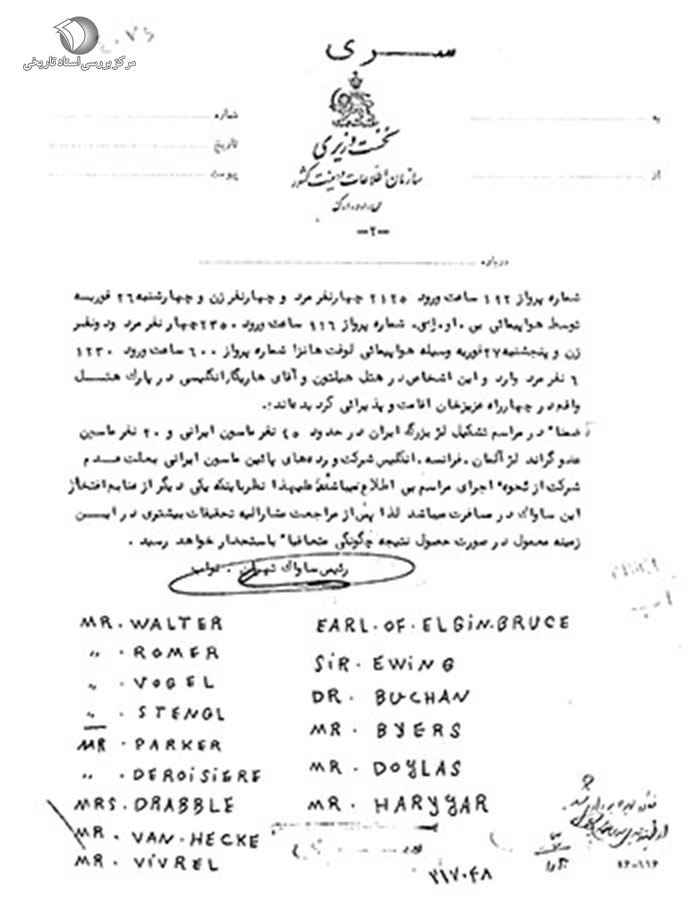 مرکز بررسی اسناد تاریخی
سری
نخست وزیری
سازمان اطلاعات و امنیت کشور
س.ا.و.ا.ک
به
شماره
از
تاریخ
پیوست
-۲-
درباره
شماره پرواز ۱۹۲ ساعت ورود ۲۱۲۵ چهارنفر مرد و چهارنفر زن و چهارشنبه ۲۶ فوریه
توسط هواپیمائی بی.او.اسی. شماره پرواز ۹۱۶ ساعت ورود ۲۳۵۰ چهار نفر مرد ودونفر
زن و پنجشنبه ۲۷ فوریه وسیله هواپیمائی لوفت هانزا شماره پرواز ۶۰۰ ساعت ورود ۱۲۳۰
۶ نفر مرد وارد و این اشخاص در هتل هیلتون و آقای هاریگار انگلیسی در پارک هتل
واقع در چهارراه عزیزخان اقامت و پذیرائی گردیده‌اند.
ضمنا" در مراسم تشکیل لژ بزرگ ایران در حدود ۴۵ نفر ماسون ایرانی و ۲۰ نفر ماسین
عدو گراند لژ آلمان.فرانسه.انگلیس شرکت و رده‌های پائین ماسون ایرانی بعلت عدم
شرکت از نحوه اجرای مراسم بی اطلاع میباشند علیهذا نظر باینکه یکی دیگر از منابع افتخار
این ساواک در مسافرت میباشد لذا پس از مراجعت مشارالیه تحقیقات بیشتری در این
زمینه معمول در صورت حصول نتیجه چگونگی متعاقبا" باستحضار خواهد رسید.
رئیس ساواک تهران. نواب
MR. WALTER
EARL. OF. ELGIN. BRUCE
" . ROMER
SIR. EWING
" . VOGEL
DR. BUCHAN
" . STENGL
MR. BYERS
MR. PARKER
MR. DOYLAS
" . DEROISIERE
MR. HARYYAR
MRS. DRABBLE
MR. VAN. HECKE
MR. VIVREL
۲۱۷۰۴۸